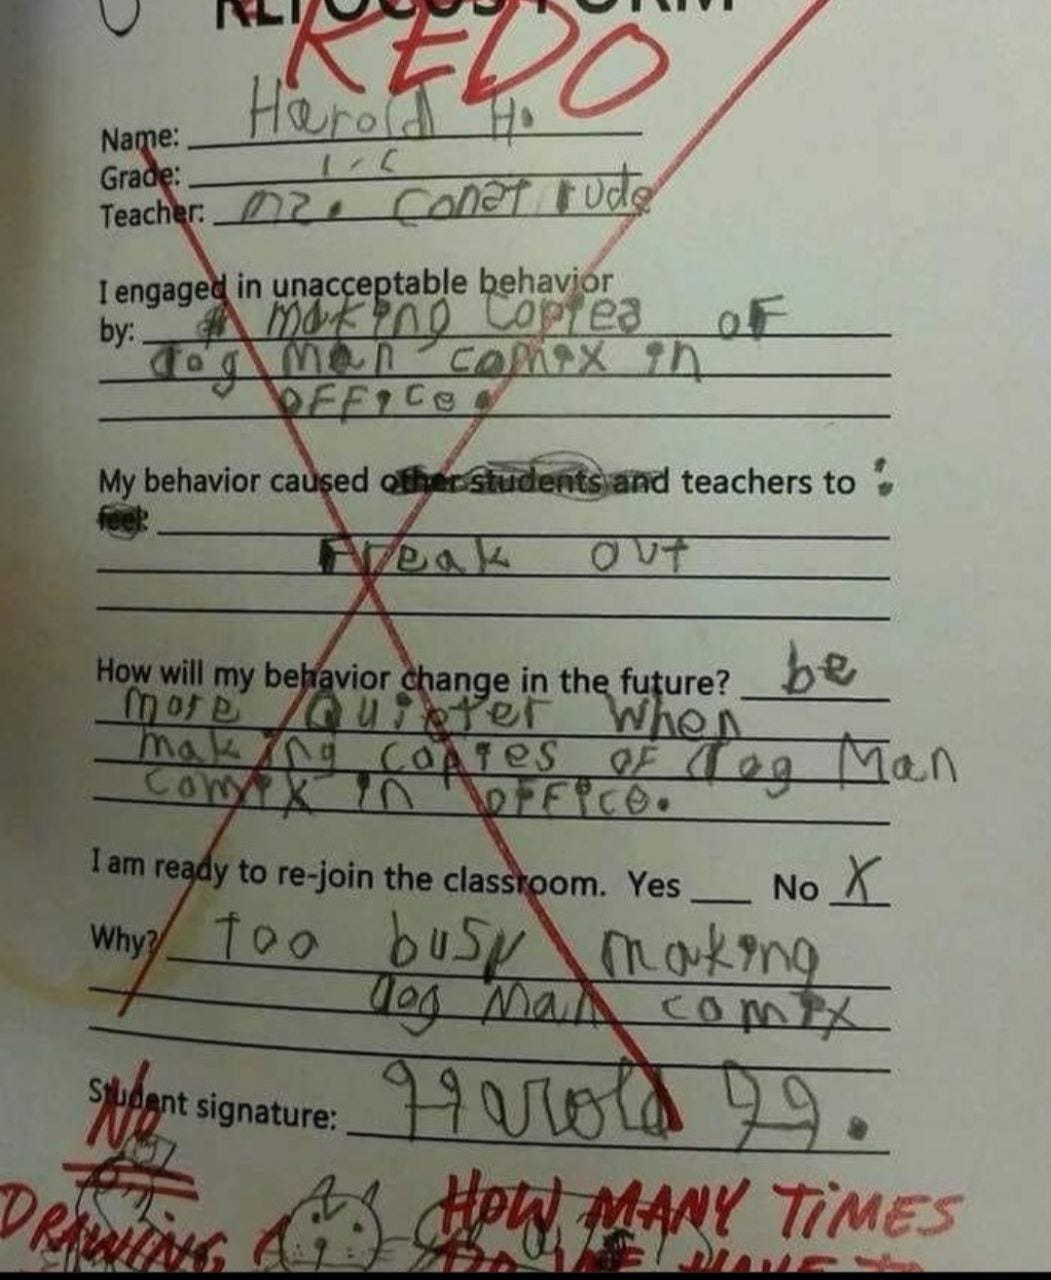 REFOCUS FORM
REDO
Name: Harold H.
Grade: 1-C
Teacher: mz. Construde
I engaged in unacceptable behavior
by: making Copies of
dog man comix in
office.
My behavior caused other students and teachers to :
feel:
Freak out
How will my behavior change in the future? be
more Quieter when
making copies of dog Man
comix in office.
I am ready to re-join the classroom. Yes ___ No X
Why? too busy making
dog Man comix
Student signature: Harold H.
No
DRAWING HOW MANY TiMES
DO WE HAVE